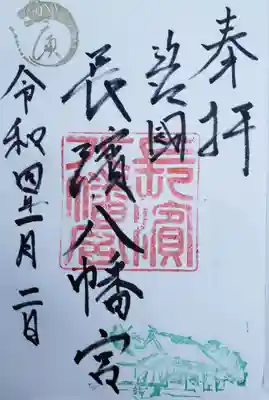 奉拝
長濱八幡宮
長濱八幡宮
令和四年一月二日